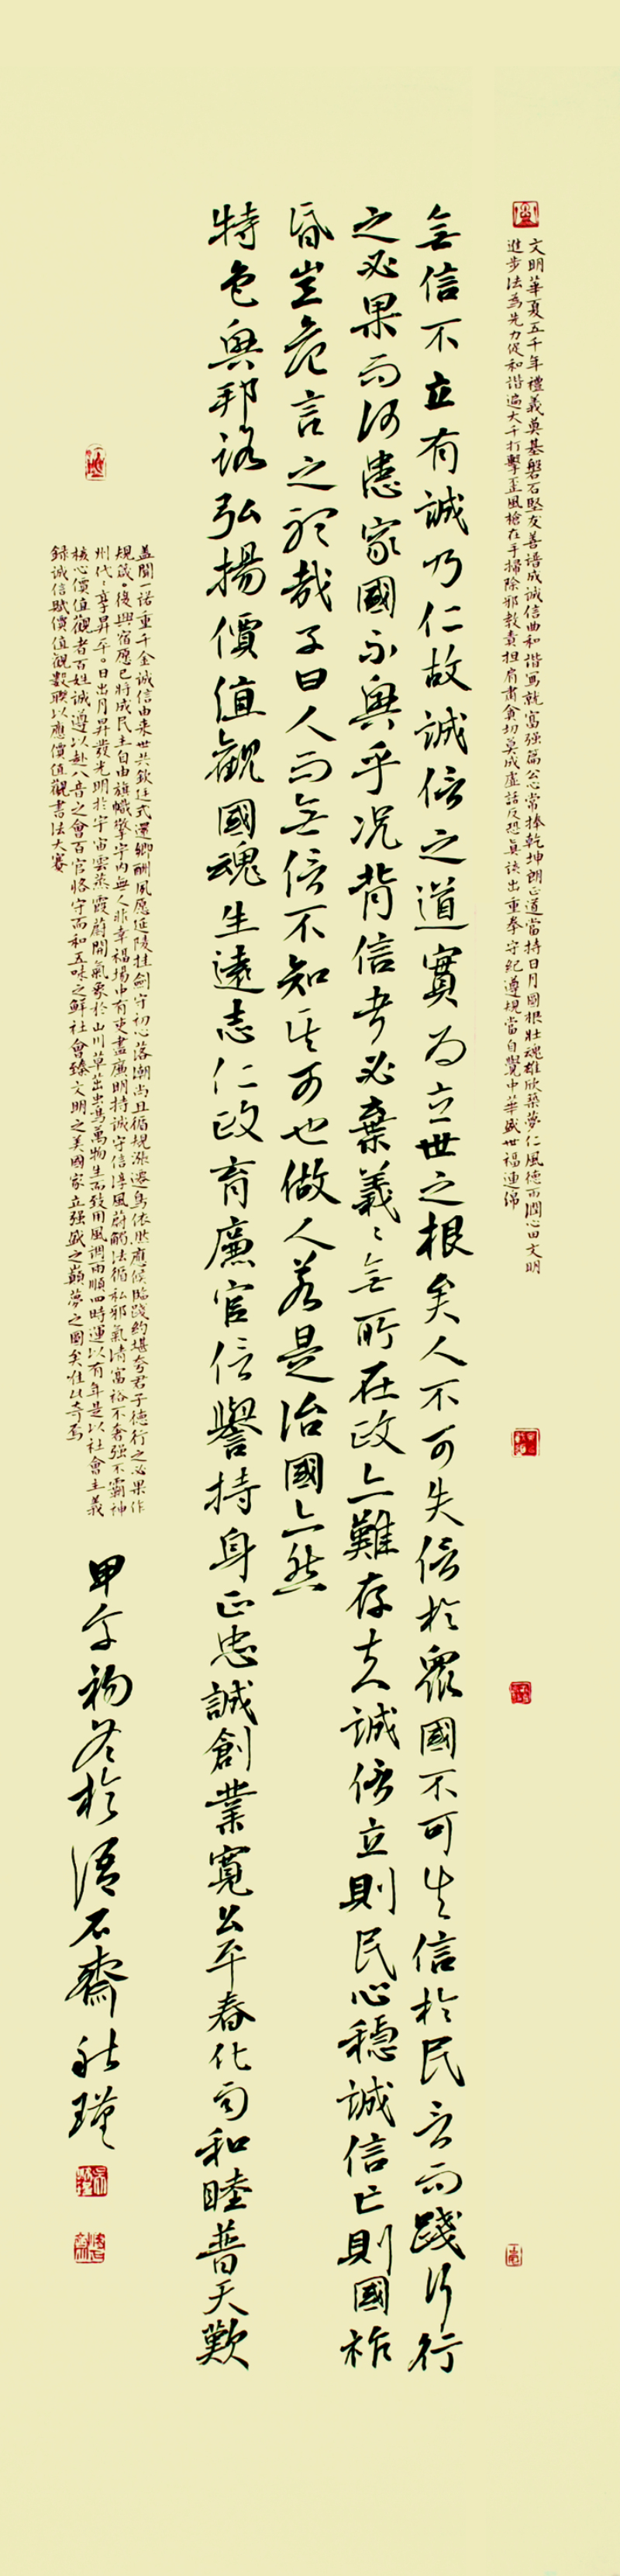 文明華夏五千年禮義奠基磐石堅友善譜成誠信曲和諧寫就富强篇公心常捧乾坤朗正道當持日月圓根壯魂雄欣築夢仁風德雨潤心田文明
進步法為先力促和諧遍大千打擊歪風槍在手掃除邪教責担肩肅貪切莫成虛話反恐真該出重拳守紀遵規當自覺中華盛世福連綿
無信不立有誠乃仁故誠信之道實為立世之根矣人不可失信於眾國不可失信於民言而踐行行
之必果而何患家國不興乎况背信者必棄義義無所在政亦難存夫誠信立則民心穩誠信亡則國祚
昏豈危言之聳哉子曰人而無信不知其可也做人若是治國亦然
特色興邦路弘揚價值觀國魂生遠志仁政育廉官信譽持身正忠誠創業寬公平春化雨和睦普天歡
盖聞一諾重千金誠信由来世共欽廷式還鄉酬夙愿延陵挂劍守初心落潮尚且循規漲遷鳥依然應候臨踐約堪夸君子德行之必果作
規箴復興宿愿已將成民主自由旗幟擎宇内無人非幸福場中有吏盡廉明持誠守信淳風蔚觸法循私邪氣清富裕不奢强不霸神
州代代享昇平日出月昇發光明於宇宙雲蒸霞蔚開氣象於山川草茁虫鳥萬物生而致用風調雨順四時運以有年是以社會主義
核心價值觀者百姓誠遵以赴八音之會百官恪守而和五味之鮮社會臻文明之美國家立强盛之巔夢之圓矣唯此奇焉
錄誠信賦價值觀數聯以應價值觀書法大賽
甲午初冬於語石齋秋瑾